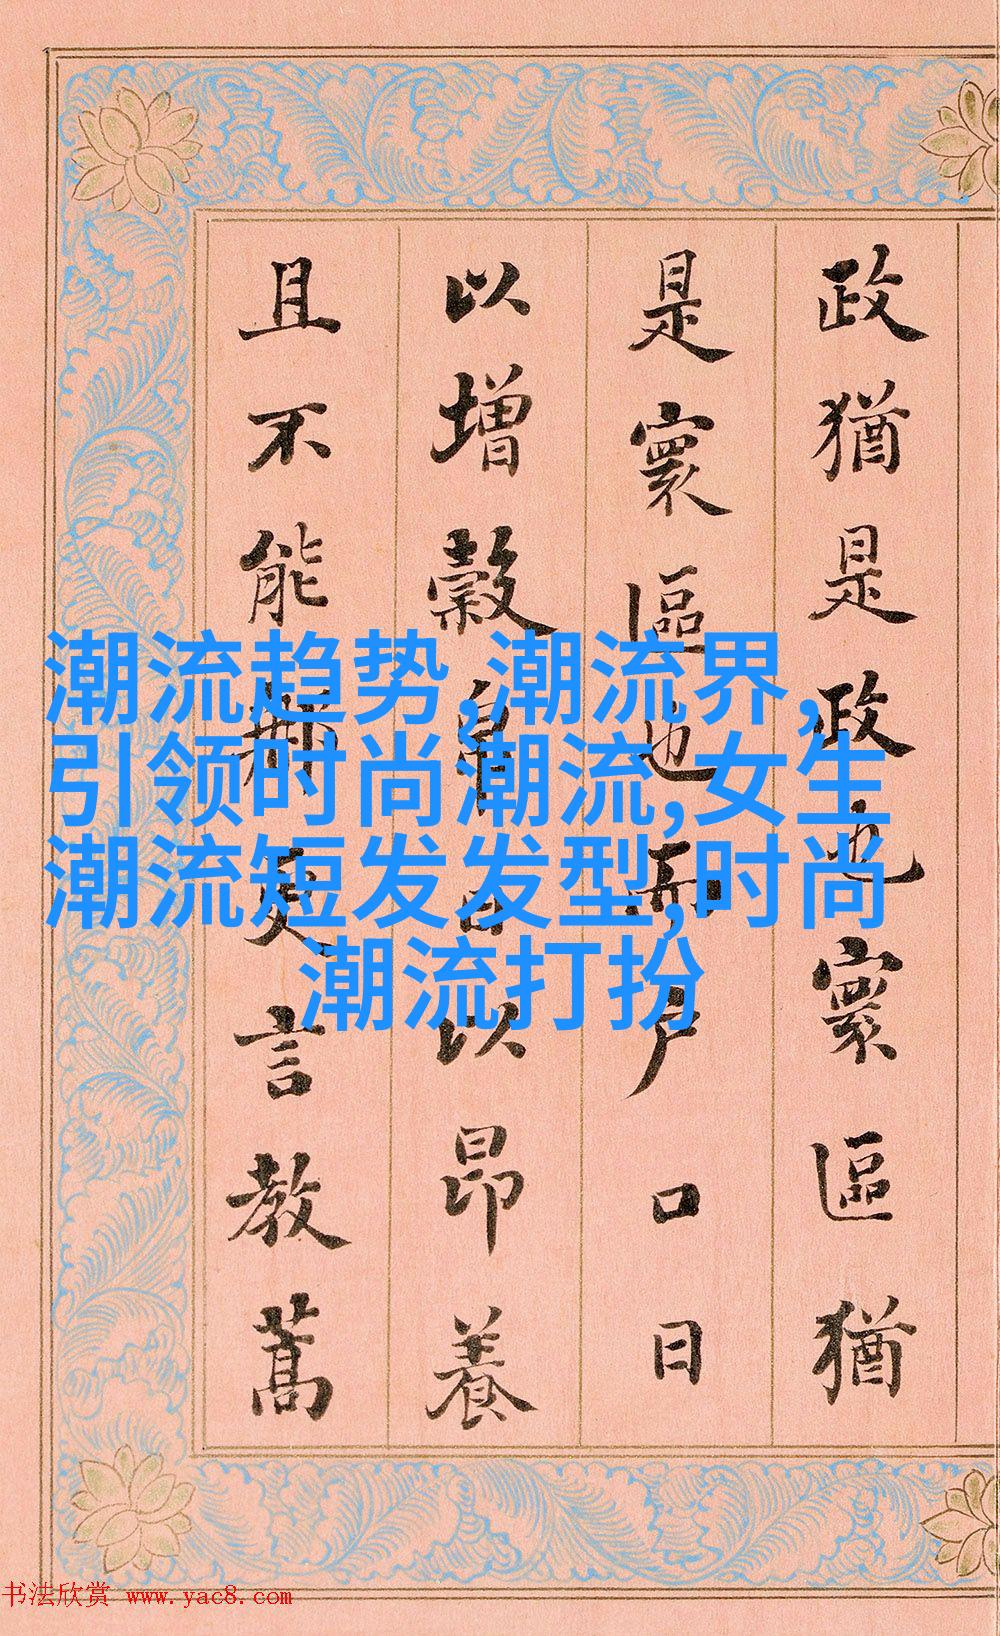 政猶是政也寰區猶
是寰區也而戶口日
以增穀帛日以昂養
且不能更言教蒿
潮流趋势,潮流界,
引领时尚潮流,女生
潮流短发发型,时尚
潮流打扮
书法欣赏 www.yac8.com